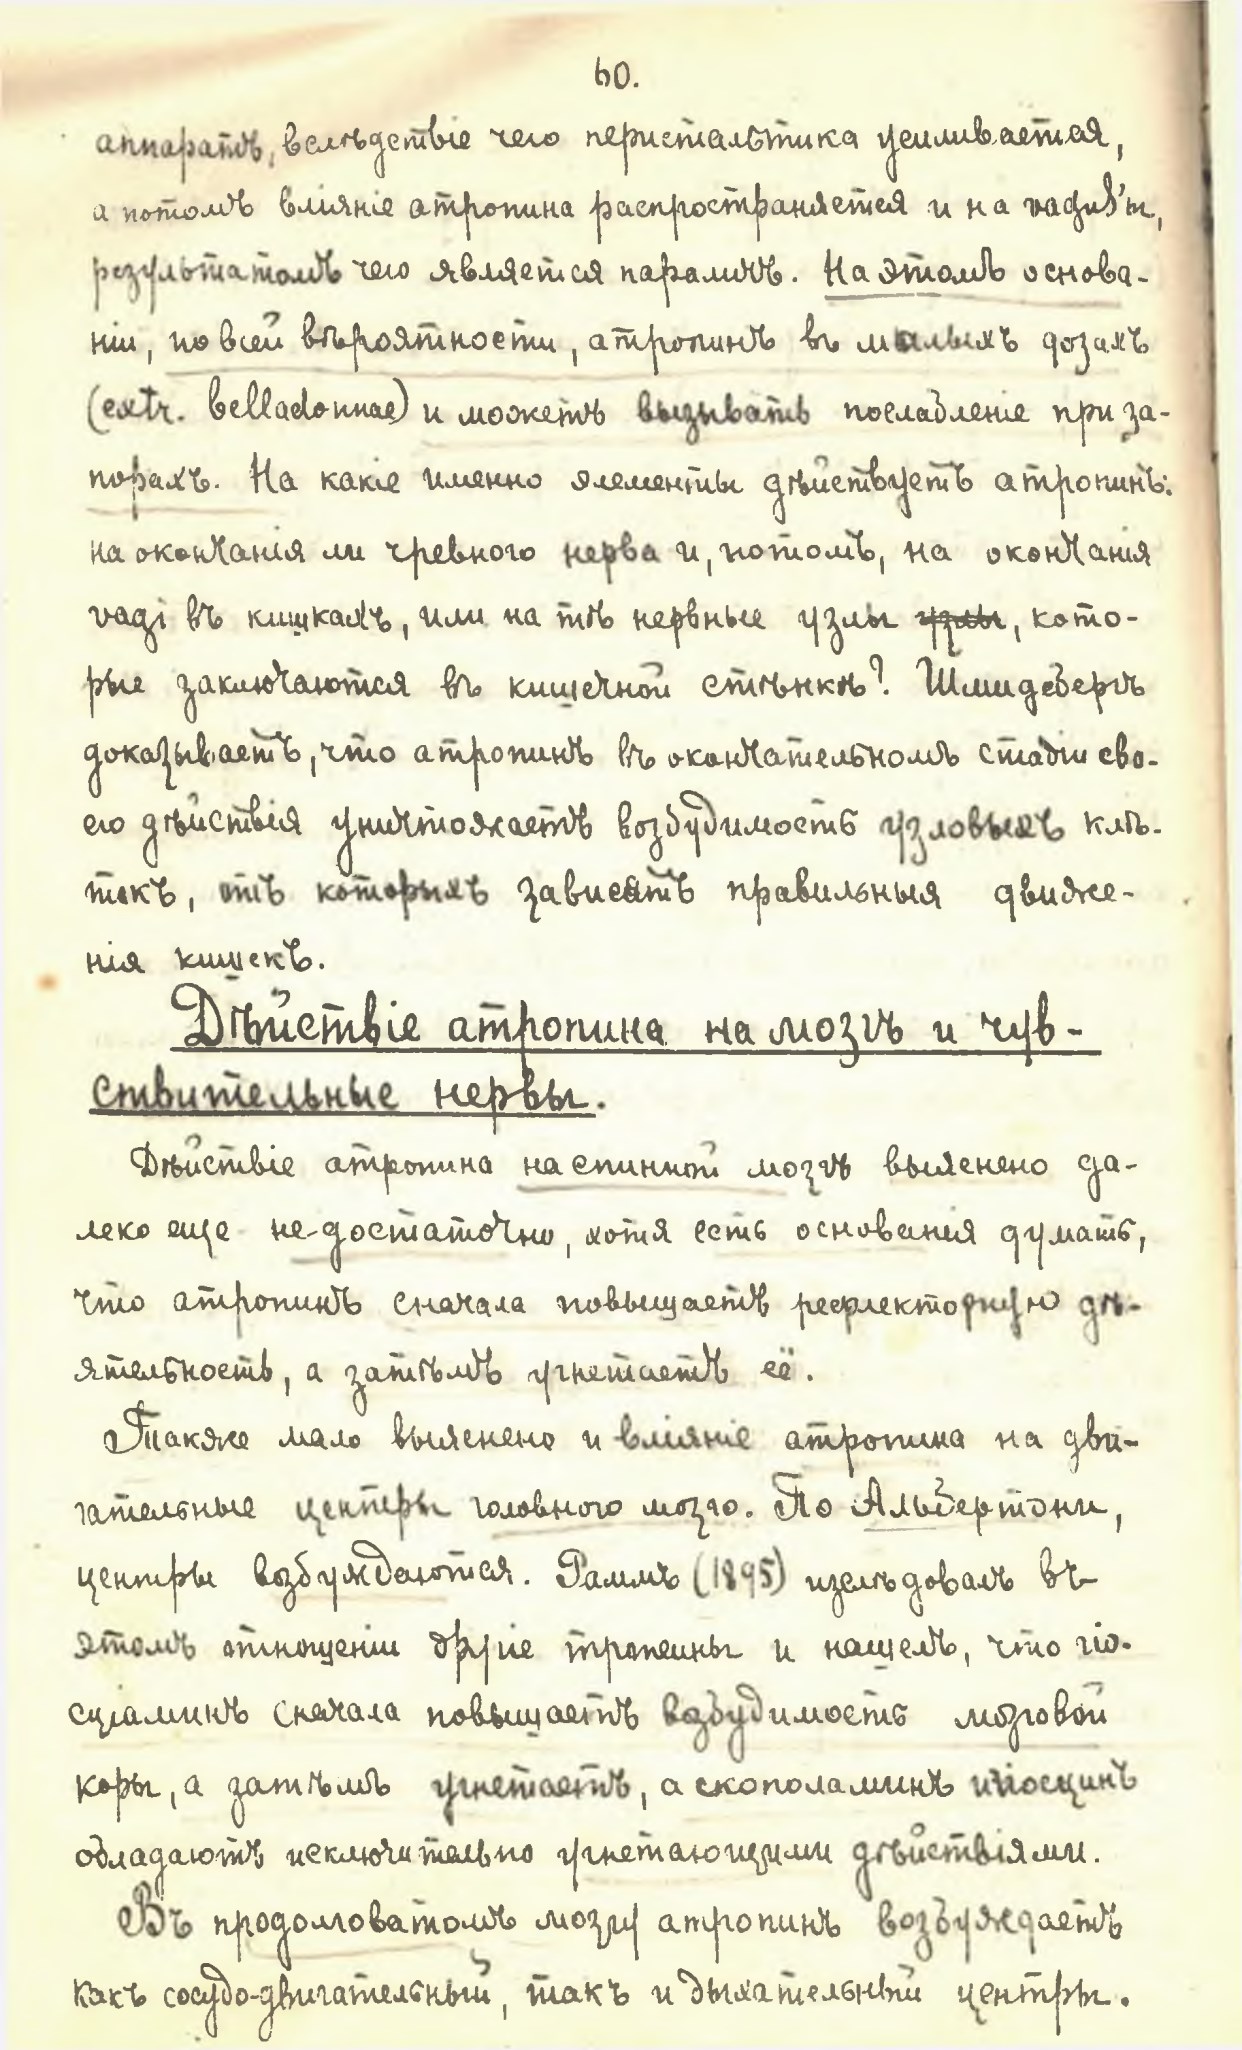 60.
аппаратъ, вслѣдствіе чего перистальтика усиливается,
а потомъ вліяніе атропина распространяется и на vagus'ы,
результатомъ чего является параличъ. На этомъ основа-
ніи, по всей вѣроятности, атропинъ въ малыхъ дозахъ
(extr. belladonnae) и можетъ вызывать послабленіе при за-
порахъ. На какіе именно элементы дѣйствуетъ атропинъ:
на окончанія ли чревного нерва и, потомъ, на окончанія
vagi въ кишкахъ, или на тѣ нервные узлы узлы, кото-
рые заключаются въ кишечной стѣнкѣ? Шмидебергъ
доказываетъ, что атропинъ въ окончательномъ стадіи сво-
его дѣйствія уничтожаетъ возбудимость узловыхъ клѣ-
токъ, отъ которыхъ зависятъ правильныя движе-
нія кишекъ.
Дѣйствіе атропина на мозгъ и чув-
ствительные нервы.
Дѣйствіе атропина на спинной мозгъ выяснено да-
леко еще не-достаточно, хотя есть основанія думать,
что атропинъ сначала повышаетъ рефлекторную дѣ-
ятельность, а затѣмъ угнетаетъ её.
Также мало выяснено и вліяніе атропина на дви-
гательные центры головного мозго. По Альбертони,
центры возбуждаются. Раммъ (1895) изслѣдовалъ въ
этомъ отношеніи другіе тропеины и нашелъ, что гіо-
сціаминъ сначала повышаетъ возбудимость мозговой
коры, а затѣмъ угнетаетъ, а скополаминъ и гіосцинъ
обладаютъ исключительно угнетающими дѣйствіями.
Въ продолговатомъ мозгу атропинъ возбуждаетъ
какъ сосудо-двигательный, такъ и дыхательный центры.